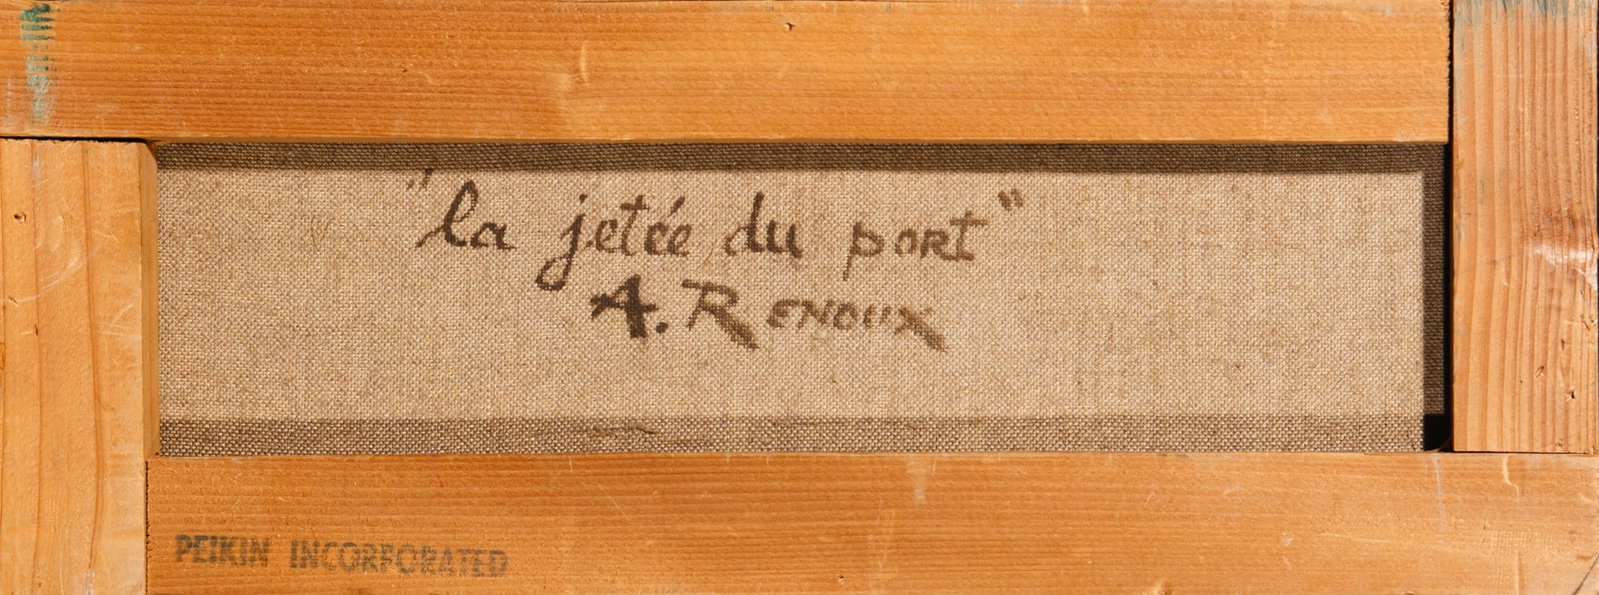 "la jetée du port"
A. RENOUX
PEIKIN INCORPORATED